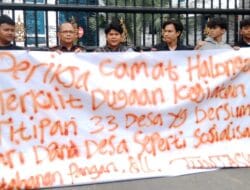 Periksa Camat Halongo
Terkait Dugaan Kegiatan
Titipan 33 Desa yg Bersum
ari Dana Desa Seperti Sosialisa
tahanan Pangan, dll.